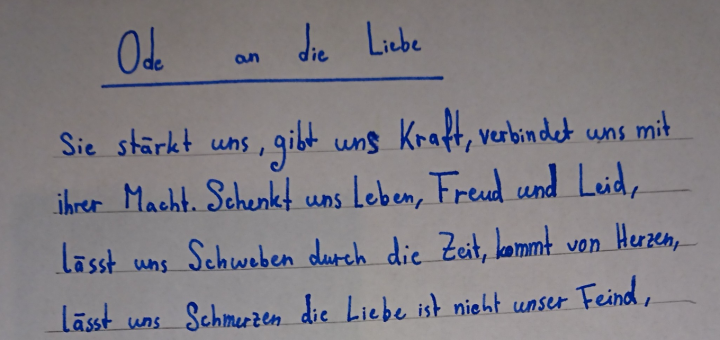 Ode an die Liebe
Sie stärkt uns, gibt uns Kraft, verbindet uns mit
ihrer Macht. Schenkt uns Leben, Freud und Leid,
lässt uns Schweben durch die Zeit, kommt von Herzen,
lässt uns Schmerzen die Liebe ist nicht unser Feind,